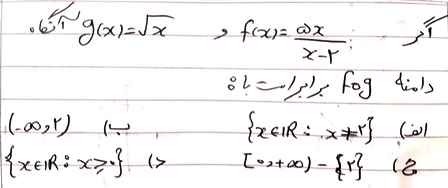 اگر f(x) = ۵x / x-۲ و g(x) = √x آنگاه
دامنه fog برابر است با:
الف) {x∈ℝ : x ≠ ۲} ب) (-∞, ۲)
ج) [۰, +∞) - {۲} د) {x∈ℝ : x ≥ ۰}